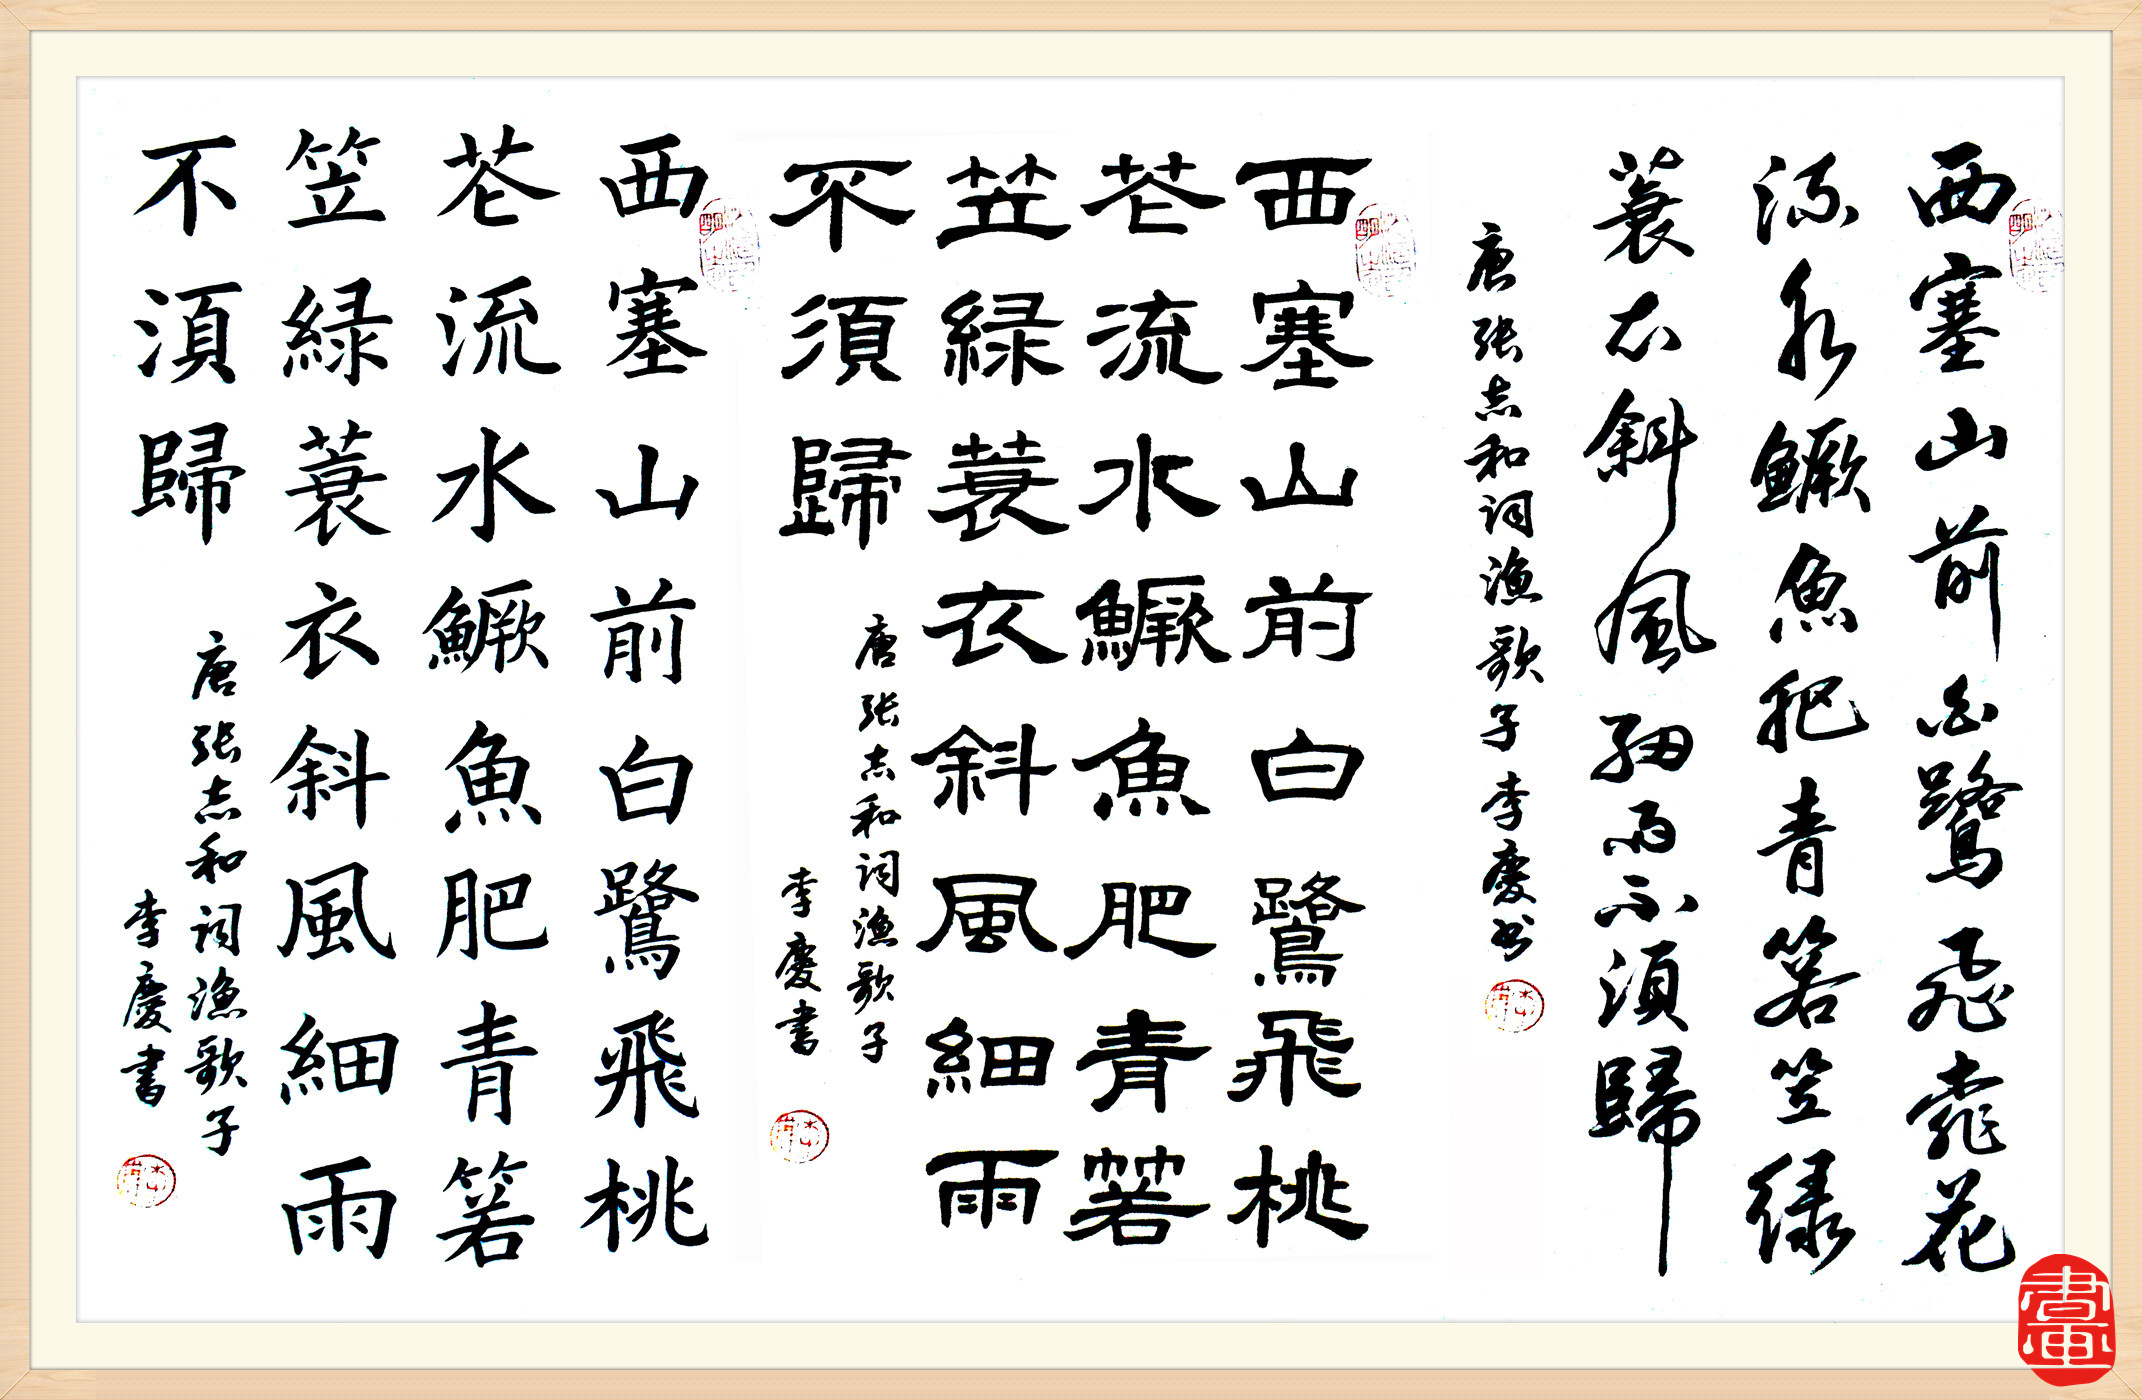 西塞山前白鷺飛桃花
流水鱖魚肥青箬笠綠
蓑衣斜風細雨不須歸
唐張志和詞漁歌子李慶书
西塞山前白鷺飛桃
花流水鱖魚肥青箬
笠綠蓑衣斜風細雨
不須歸
唐張志和詞漁歌子
李慶書
西塞山前白鷺飛桃
花流水鱖魚肥青箬
笠綠蓑衣斜風細雨
不須歸
唐張志和詞漁歌子
李慶書
書畫